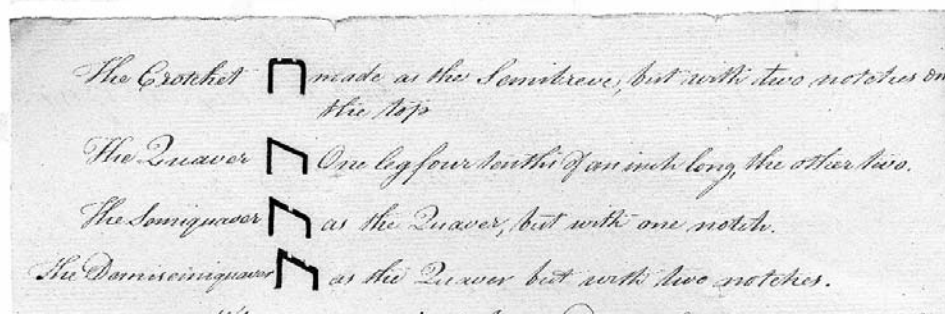 The Crotchet made as the Semibreve, but with two notches on
the top
The Quaver One leg four tenths of an inch long, the other two.
The Semiquaver as the Quaver, but with one notch.
The Demisemiquaver as the Quaver but with two notches.